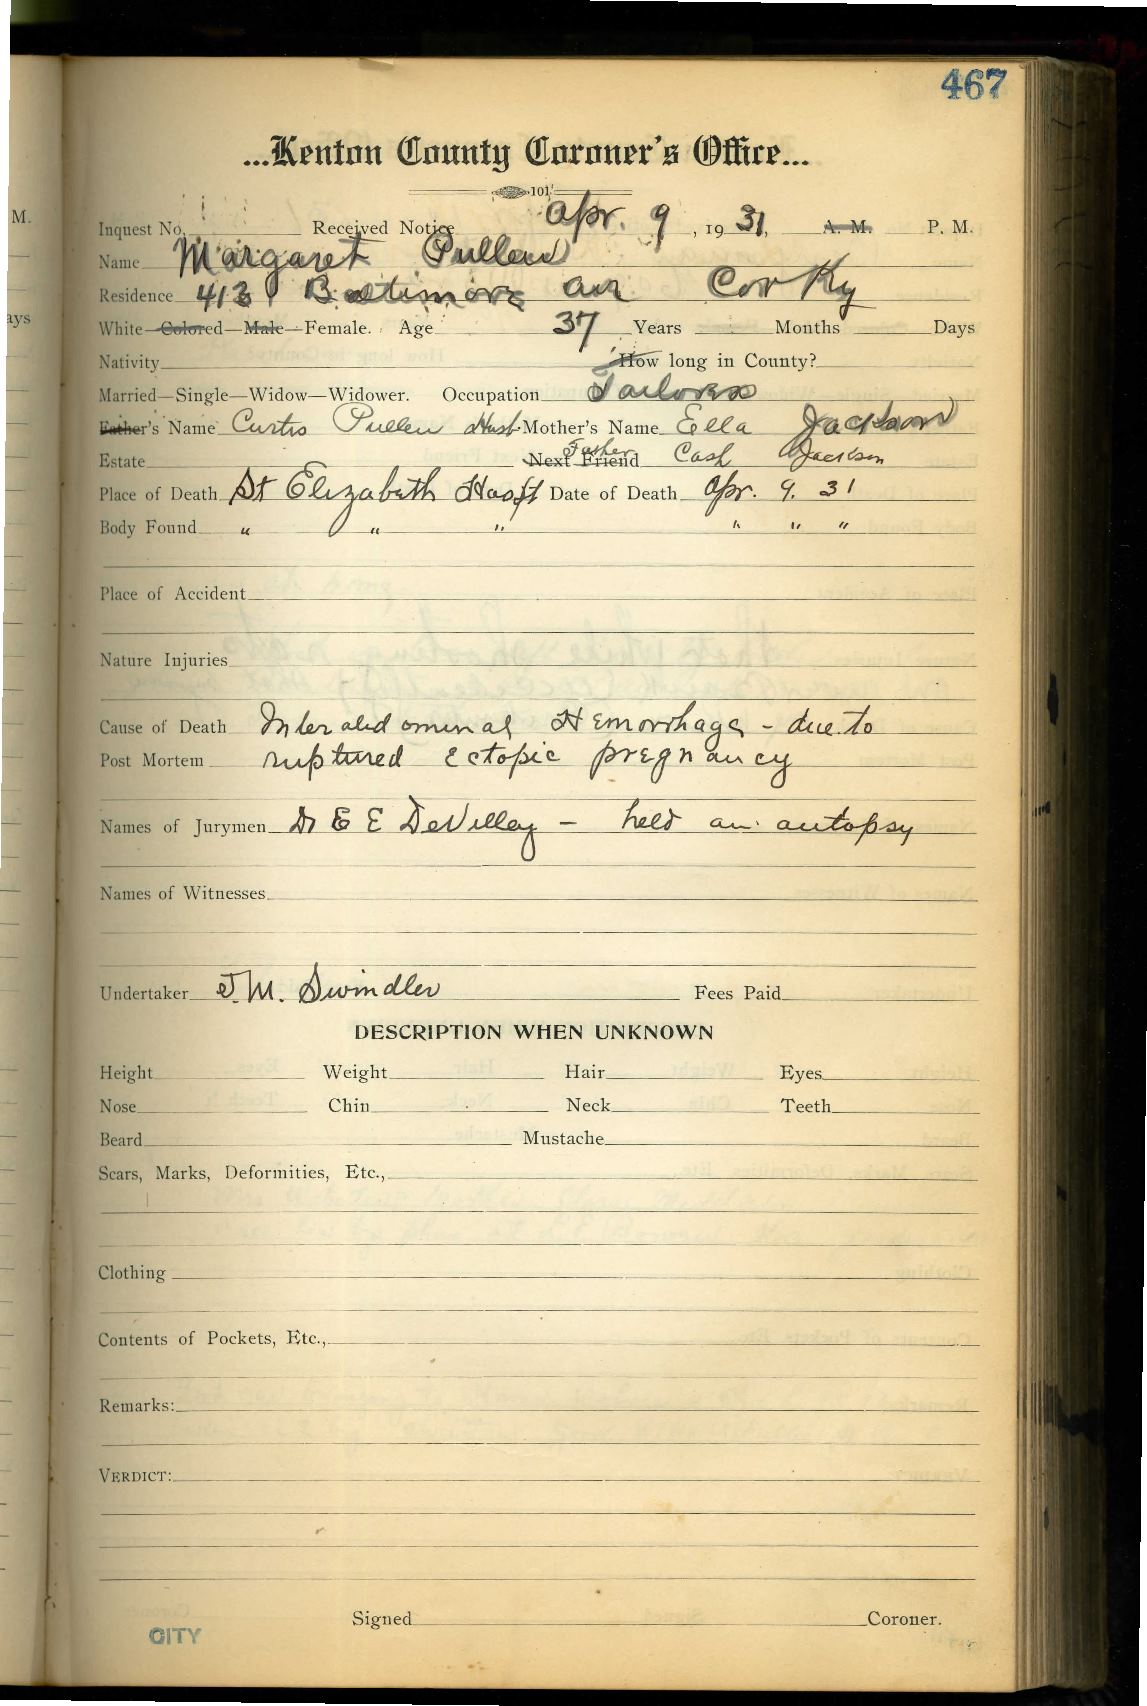 467
...Kenton County Coroner's Office...
101
Inquest No. Received Notice Apr. 9, 1931, A. M. P. M.
Name Margaret Pullen
Residence 413 Baltimore ave Cov Ky
White—Colored—Male—Female. Age 37 Years Months Days
Nativity How long in County?
Married—Single—Widow—Widower. Occupation Tailoress
Father's Name Curtis Pullen Husb. Mother's Name Ella Jackson
Estate Next Friend Father Cash Jackson
Place of Death St Elizabeth Hospt Date of Death Apr. 9. 31
Body Found " " " " " "
Place of Accident
Nature Injuries
Cause of Death Interabdominal Hemorrhage - due to
Post Mortem ruptured Ectopic pregnancy
Names of Jurymen Dr E E DeVilley - held an autopsy
Names of Witnesses
Undertaker J.M. Swindler Fees Paid
DESCRIPTION WHEN UNKNOWN
Height Weight Hair Eyes
Nose Chin Neck Teeth
Beard Mustache
Scars, Marks, Deformities, Etc.,
Clothing
Contents of Pockets, Etc.,
Remarks:
VERDICT:
Signed Coroner.
CITY
M.
ays